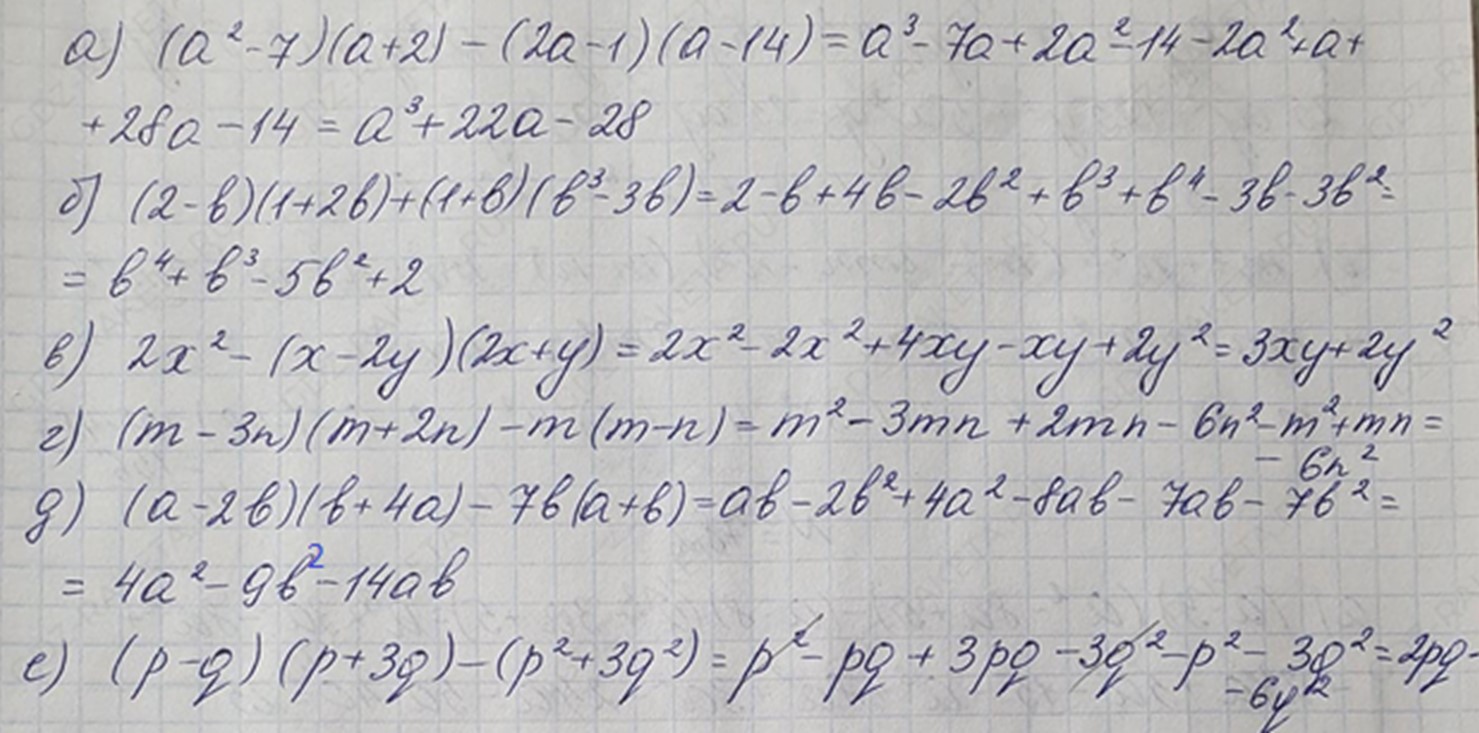 а) (a²-7)(a+2) - (2a-1)(a-14) = a³- 7a + 2a²-14 - 2a²+a+
+28a - 14 = a³+22a - 28
б) (2-b)(1+2b)+(1+b)(b³-3b)=2-b+4b-2b²+b³+b⁴-3b-3b²=
= b⁴+b³-5b²+2
в) 2x²- (x-2y)(2x+y) = 2x²-2x²+4xy-xy+2y²=3xy+2y²
г) (m-3n)(m+2n) -m(m-n)=m²-3mn+2mn-6n²-m²+mn=
- 6n²
д) (a-2b)(b+4a)-7b(a+b)=ab-2b²+4a²-8ab-7ab-7b²=
= 4a²-9b²-14ab
е) (p-q)(p+3q)-(p²+3q²)=p²-pq+3pq-3q²-p²-3q²=2pq-
-6q²